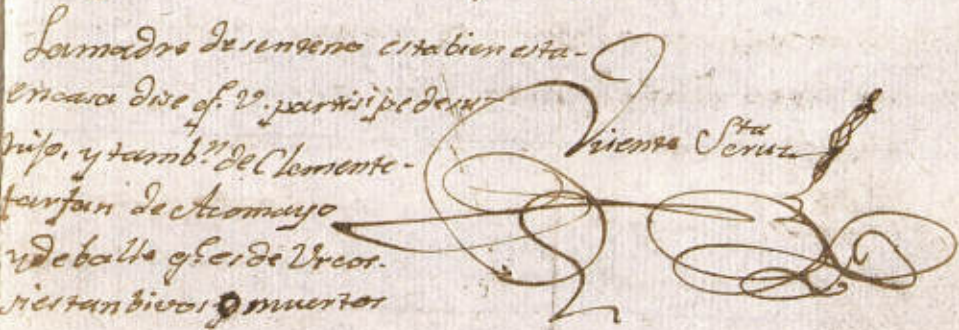 La madre de senteno esta bien esta-
en casa dise q.e V. partisipe de su
hijo, y tamb.n de Clemente-
farfan de Acomayo
y de balle q.e es de Urcos.
si estan bivos o muertos
Visente Sta Cruz